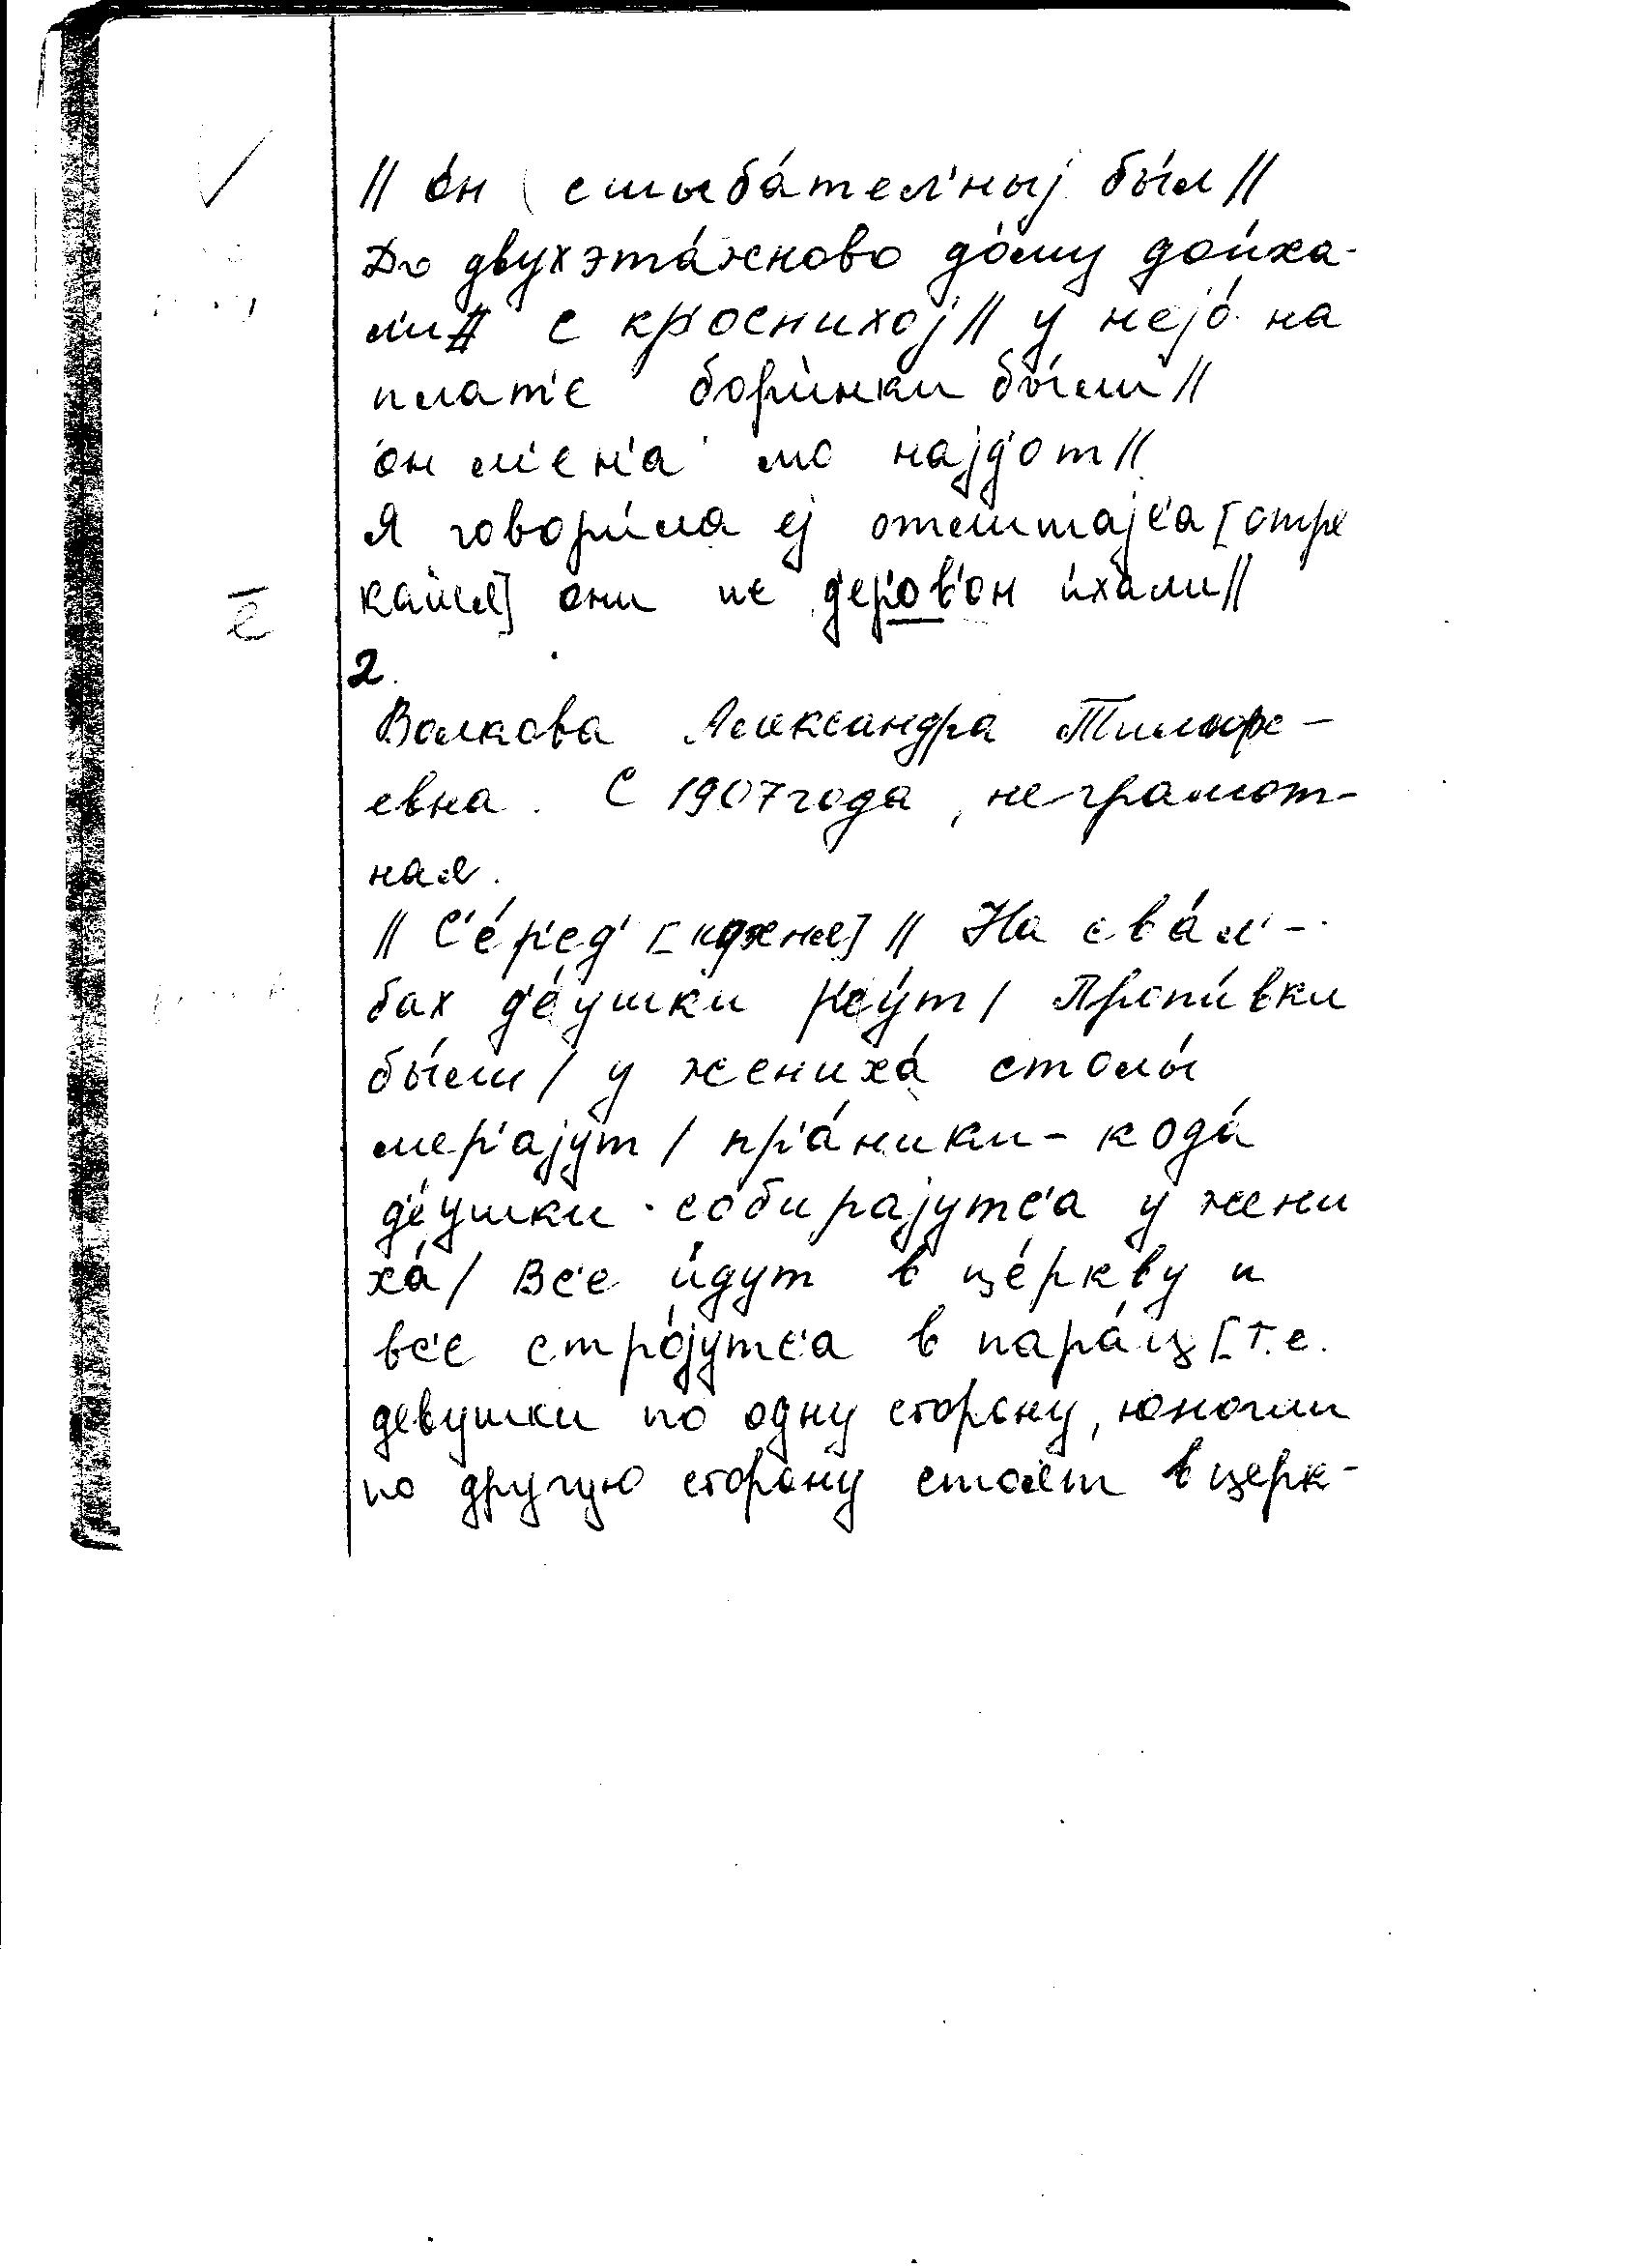 // о́н улыба́тел'ныj бы́л //
До двухэта́жново до́му дойха-
л'и // с кр'о́снихоj // у нејо́ на
плат'е бори́нки бы́ли //
он м'ен'а́ мо најд'от //
Я говори́ла еj отлиTaјс'а [отре
кайся] они по д'ер'о́в'он и́хали //
ē
2.
Волкова Александра Тимофе-
евна. С 1907 года, неграмот-
ная.
// С'е́р'ед' [кухня] // На сва́л'-
бах д'е́ушки р'еу́т / Пропи́вки
бы́ли / у жениха́ столы́
мер'аjут / пр'а́ники - кода́
д'е́ушки собираjутс'а у жени
ха́ / Вс'е и́дут в це́ркву и
вс'е стро́jутс'а в пара́ц [т.е.
девушки по одну сторону, юноши
по другую сторону стоят в церк-